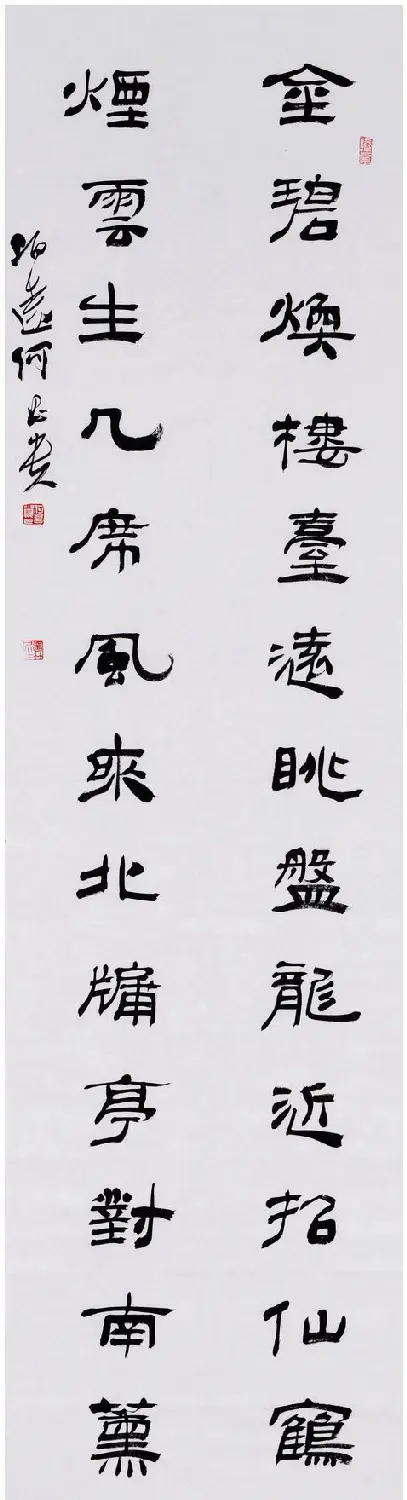 金碧煥樓臺遠眺盤龍近招仙鶴
煙雲生几席風來北牖亭對南薰
何